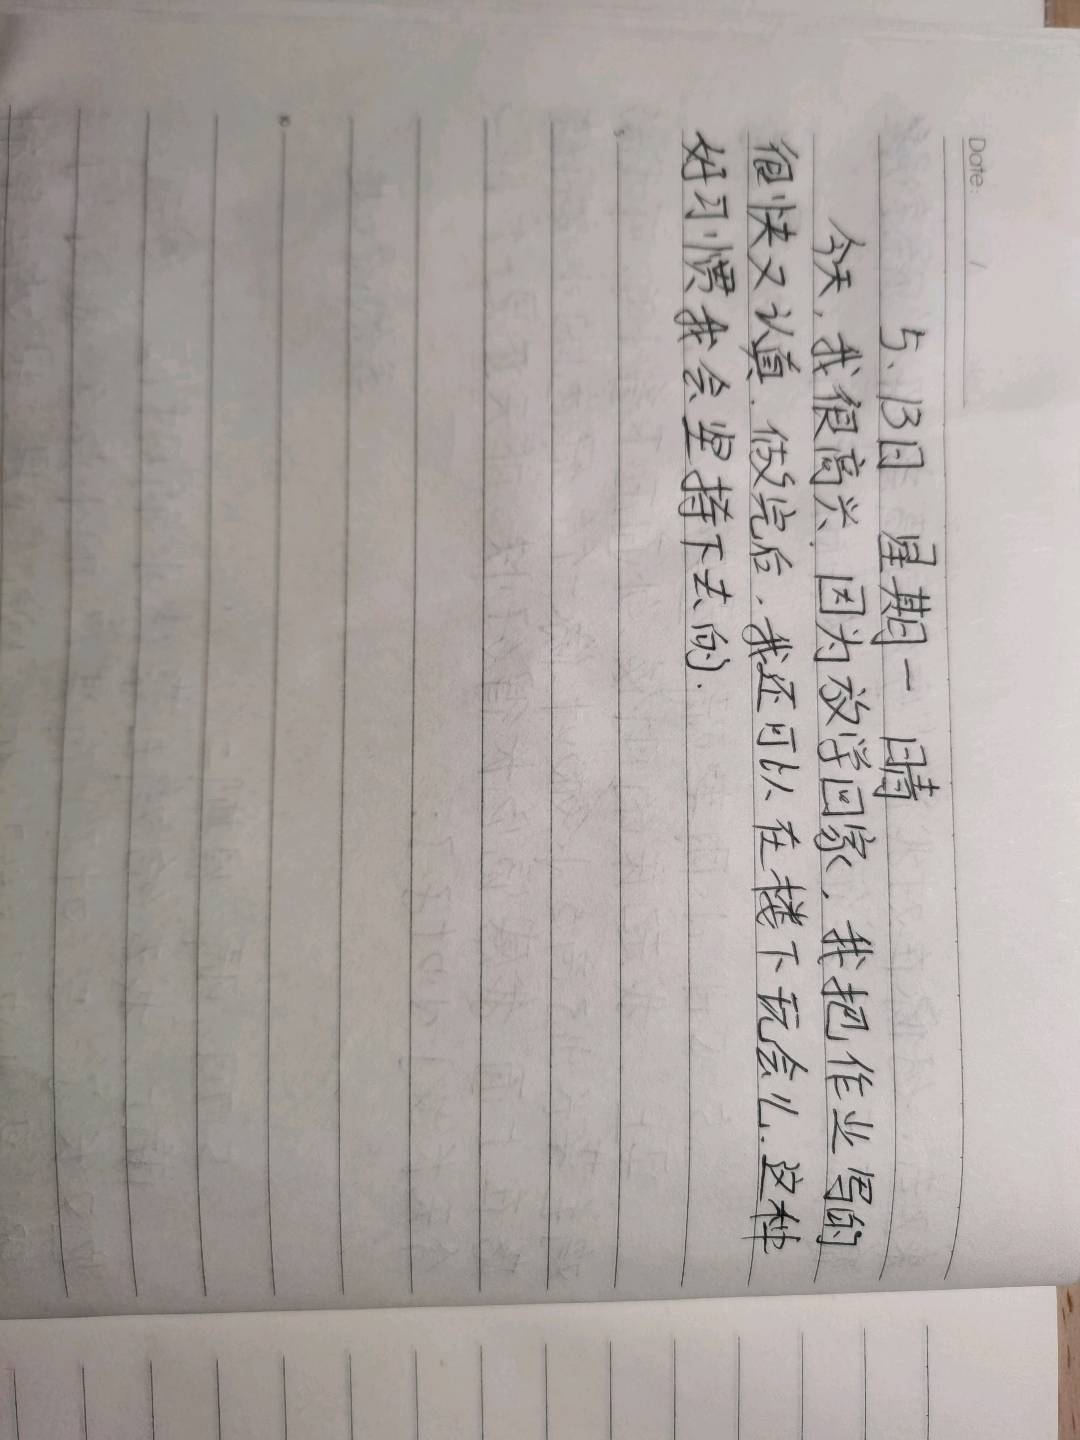 Date:
5、13日 星期一 晴
今天，我很高兴．因为放学回家，我把作业写的
很快又认真．做完后，我还可以在楼下玩会儿．这种
好习惯我会坚持下去的．
5
10